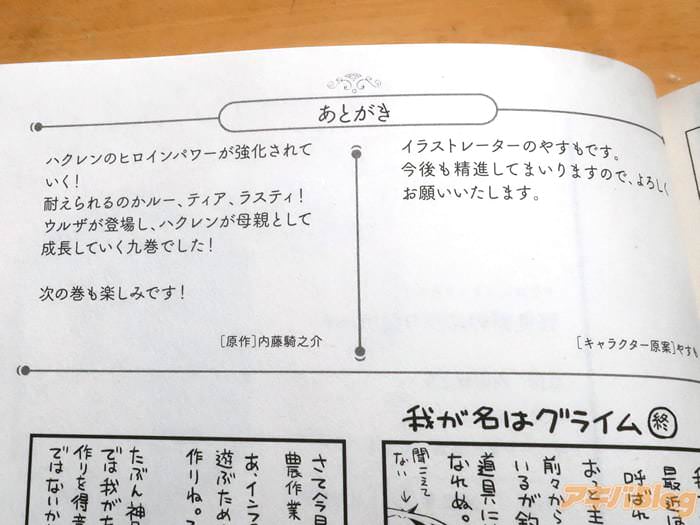 あとがき
ハクレンのヒロインパワーが強化されて
いく！
耐えられるのかルー、ティア、ラスティ！
ウルザが登場し、ハクレンが母親として
成長していく九巻でした！
次の巻も楽しみです！
［原作］内藤騎之介
イラストレーターのやすもです。
今後も精進してまいりますので、よろしく
お願いいたします。
［キャラクター原案］やすも
我が名はグライム 終
呼ばれ
おっと
前々から
いるが
道具に
なれぬ。
聞こえて
ない
さて今日
農作業
あ、イフ
遊ぶため
作りね。
たぶん神
では我が
作りを得意
ではないか
アキバBlog